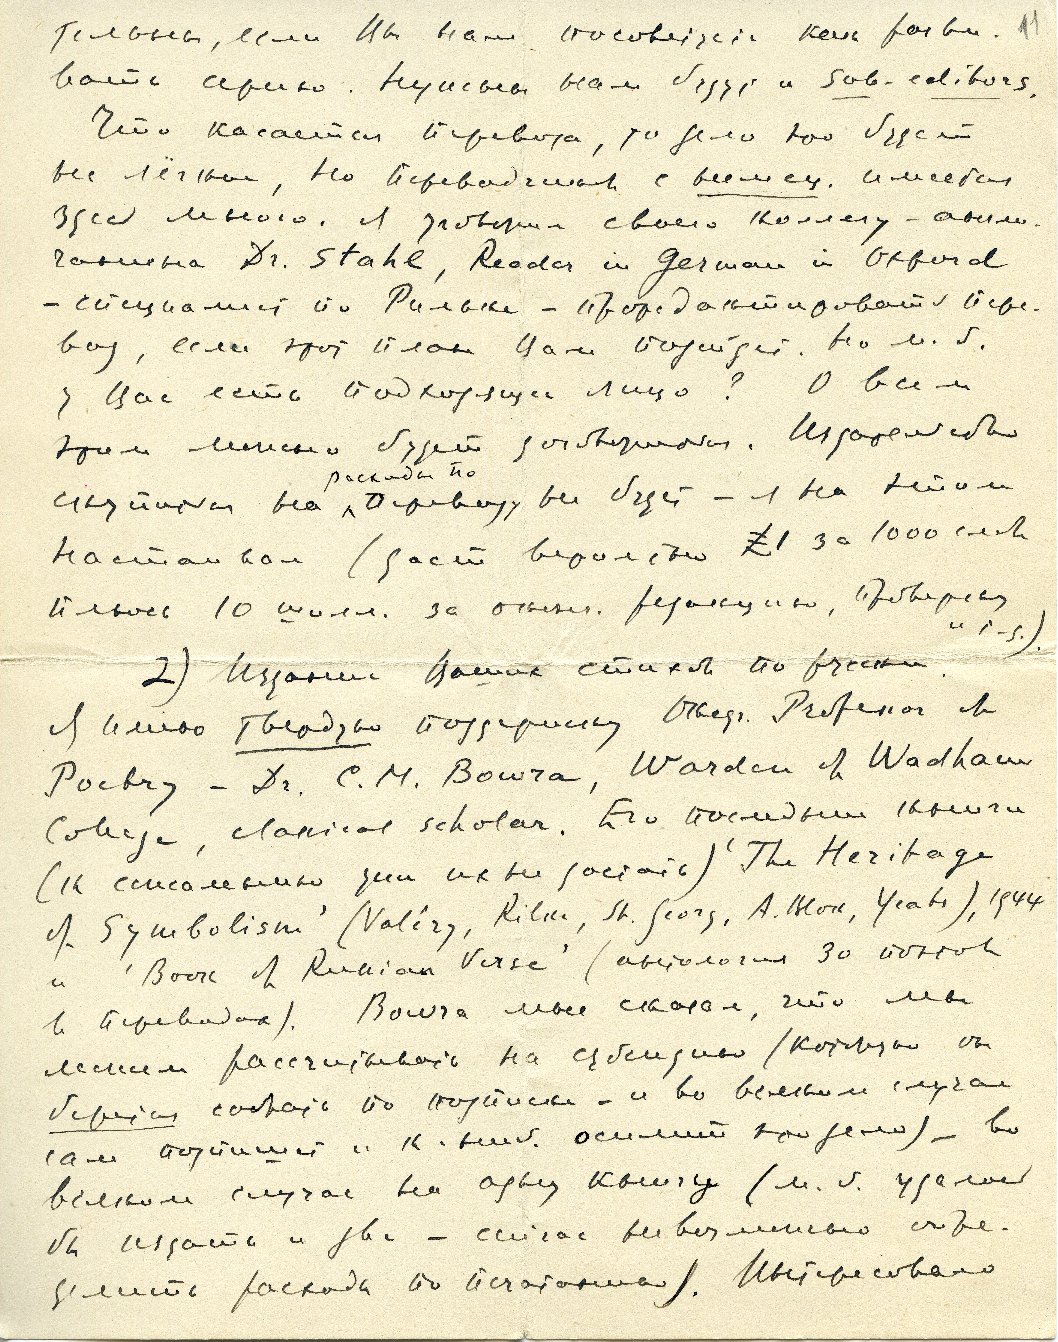 тельны, если Вы нам посоветуете как разви- 11
вать серию. Нужны нам будут и sub-editors.
Что касается перевода, то дело это будет
не лёгкое, но переводчиков с немец. имеется
здесь много. Я уговорил своего коллегу – англи-
чанина Dr. Stahl, Reader in German in Oxford
– специалист по Рильке – проредактировать пере-
вод, если этот план Вам подойдет. Но м. б.
у Вас есть подходящее лицо? О всем
этом можно будет договориться. Издательство
скупиться на расходы по переводу не будет – я на этом
настаиваю (даст вероятно £1 за 1000 слов
плюс 10 шилл. за оконч. редакцию, проверку
и т.д.).
2) Издание Ваших стихов по русски.
Я имею твердую поддержку Оксф. Professor of
Poetry – Dr. C. M. Bowra, Warden of Wadham
College, classical scholar. Его последние книги
(к сожалению здесь их не достать) 'The Heritage
of Symbolism' (Valéry, Rilke, St. Georg, A. Blok, Yeats), 1944
и 'Book of Russian Verse' (антология 30 поэтов
в переводах). Bowra мне сказал, что мы
можем рассчитывать на субсидию (которую он
берется собрать по подписке – и во всяком случае
сам подпишет и к.-ниб. осилит это дело) – во
всяком случае на одну книгу (м. б. удалось
бы издать и две – сейчас невозможно опре-
делить расходы по печатанию). Интересовало